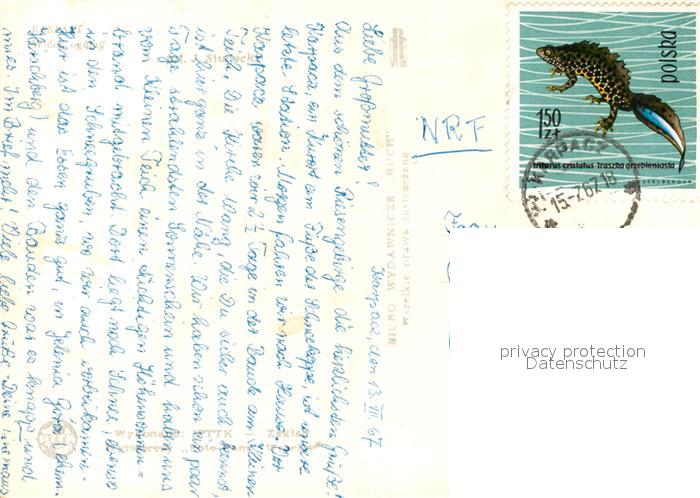 Karpacz, den 13. VII 67
Liebe Großmutting!
Aus dem schönen Riesengebirge die herzlichsten Grüße!
Karpacz, ein Kurort am Fuße der Schneekoppe, ist unsere
letzte Station. Morgen fahren wir nach Hause. Vor
Karpacz waren wir 2 1/2 Tage in der Baude am Kleinen
Teich. Die Kirche Wang, die Du sicher auch kennst,
ist hier ganz in der Nähe. Wir haben schon ein paar
Tage strahlenden Sonnenschein und haben uns
vom Kleinen Teich einen tüchtigen Höhensonnen-
brand mitgebracht. Dort liegt noch Schnee, ebenso
in den Schneegruben, wo wir auch vorbeikamen.
Hier ist das Essen ganz gut, in Jelenia Góra (ehem.
Hirschberg) und den Bauden war es knapp und
mies. Im Brief mehr! Viele liebe Grüße - Deine
NRF
BIURO WYDAWNICZE „RUCH"
Wszelkie prawa zastrzeżone
150 zł
polska
triturus cristatus - traszka grzebieniasta
KARPACZ
15-7.67.18
privacy protection
Datenschutz